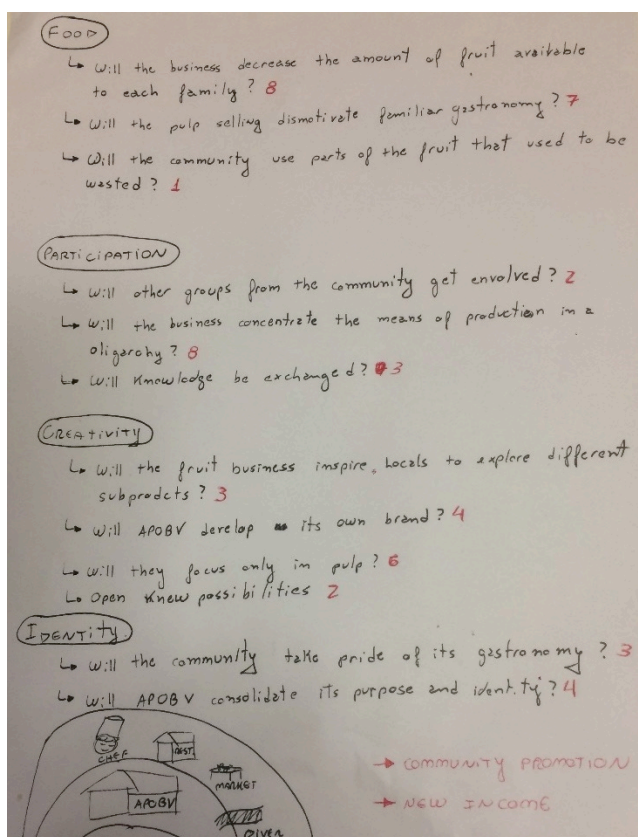 FOOD
↳ Will the business decrease the amount of fruit available
to each family? 8
↳ Will the pulp selling dismotivate familiar gastronomy? 7
↳ Will the community use parts of the fruit that used to be
wasted? 1
PARTICIPATION
↳ Will other groups from the community get envolved? 2
↳ Will the business concentrate the means of production in a
oligarchy? 8
↳ Will Knowledge be exchanged? 3
CREATIVITY
↳ Will the fruit business inspire locals to explore different
subprodcts? 3
↳ Will APOBV develop its own brand? 4
↳ Will they focus only in pulp? 6
↳ Open Knew possibilities 2
IDENTITY
↳ Will the community take pride of its gastronomy? 3
↳ Will APOBV consolidate its purpose and identity? 4
CHEF
REST.
MARKET
APOBV
RIVER
→ COMMUNITY PROMOTION
→ NEW INCOME